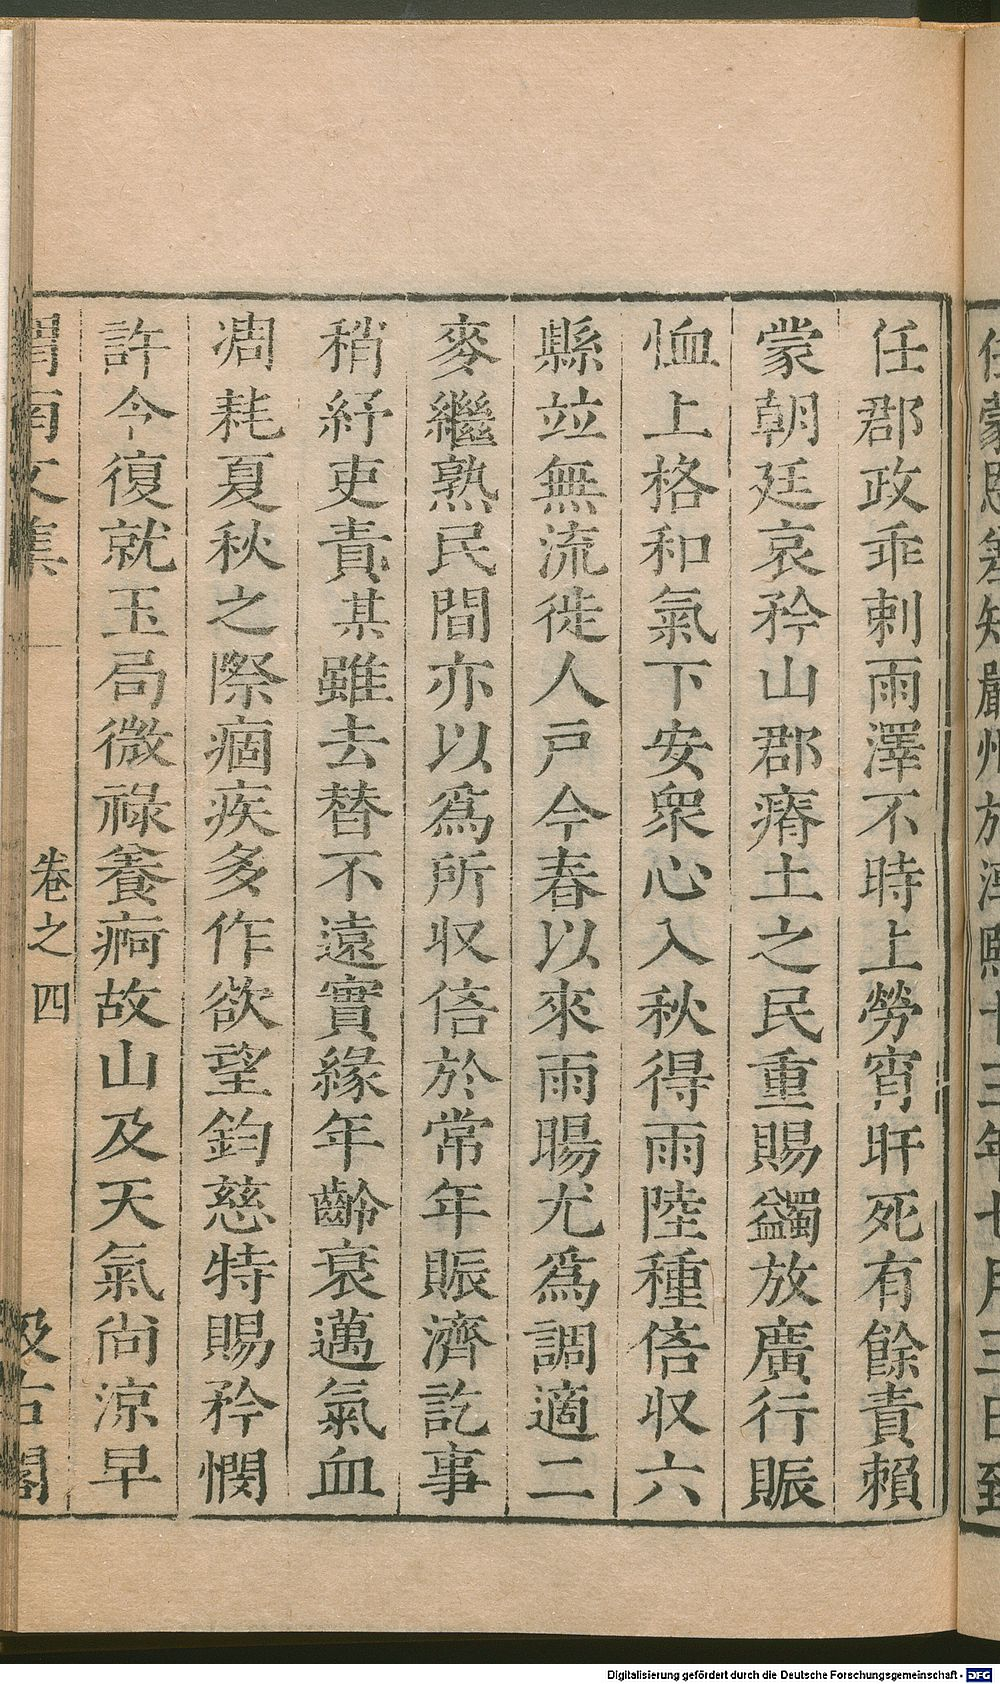 任郡政乖剌雨澤不時上勞宵旰死有餘責賴
蒙朝廷哀矜山郡瘠土之民重賜蠲放廣行賑
恤上格和氣下安衆心入秋得雨陸種倍收六
縣竝無流徙人戶今春以來雨暘尤爲調適二
麥繼熟民間亦以爲所收倍於常年賑濟訖事
稍紓吏責某雖去替不遠實緣年齡衰邁氣血
凋耗夏秋之際痼疾多作欲望鈞慈特賜矜憫
許令復就玉局微祿養痾故山及天氣尚涼早
渭南文集 卷之四 汲古閣
Digitalisierung gefördert durch die Deutsche Forschungsgemeinschaft - DFG